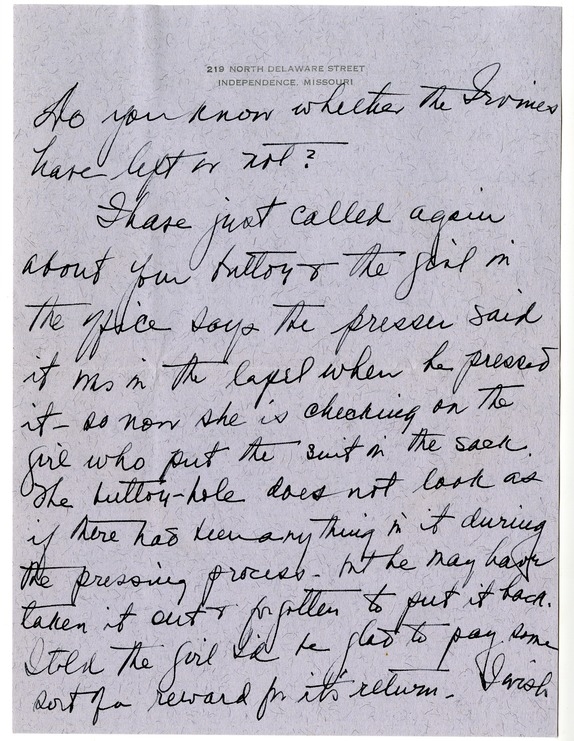 219 NORTH DELAWARE STREET
INDEPENDENCE, MISSOURI
Do you know whether the Irvines
have left or not?
I have just called again
about your button & the girl in
the office says the presser said
it was in the lapel when he pressed
it - so now she is checking on the
girl who put the suit in the sack.
The button-hole does not look as
if there had been anything in it during
the pressing process - but he may have
taken it out & forgotten to put it back.
I told the girl I'd be glad to pay some
sort of a reward for it's return. I wish